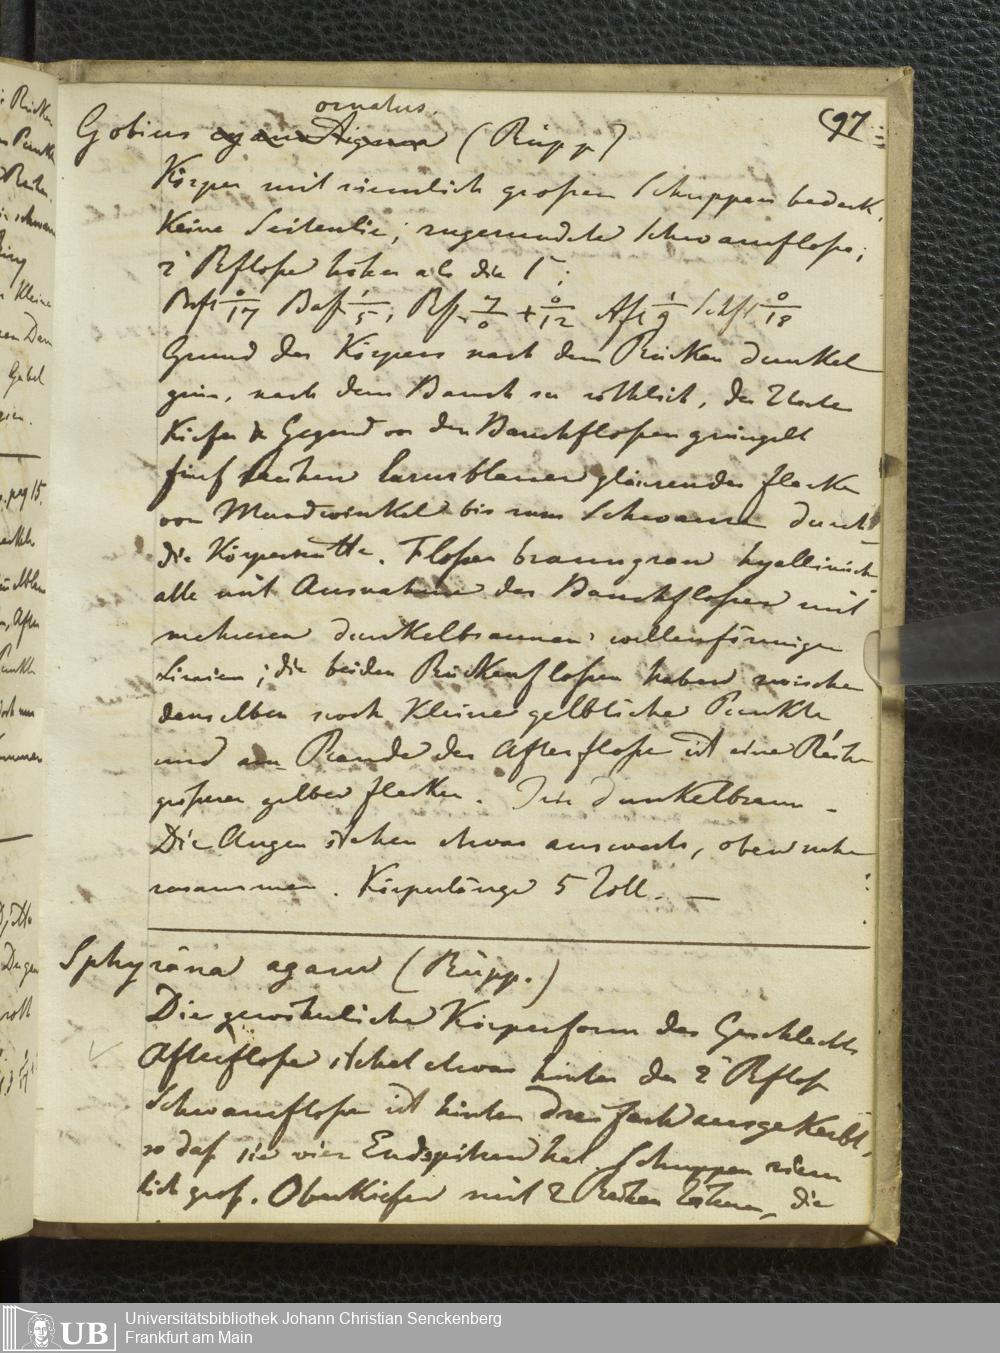 ornatus.
97
Gobius cyanostigma (Rüpp)
Körper mit ziemlich großen Schuppen bedeckt,
Keine Seitenlinie; zugerundete Schwanzfloße;
2t Rfloße höher als die 1t;
Brfl 0/17 Bafl 1/5, Rfl. 7/0 + 0/12 Afl 1/9 Schfl 0/18
Grund des Körpers nach dem Rücken dunkel
grün, nach dem Bauch zu röthlich, der Unter
Kiefer & Gegend von den Bauchfloßen grüngelb
fünf Reihen lazurblauer glänzender Flecken
vom Mundwinkel bis zum Schwanze durch
die Körpermitte. Floßen braungrau hyallinisch
alle mit Ausnahme der Bauchfloßen mit
mehreren dunkelbraunen wellenförmigen
Linien; die beiden Rückenfloßen haben zwischen
denselben noch kleine gelbliche Punkte
und am Rande der Afterfloße ist eine Reihe
größerer gelber Flecken. Iris dunkelbraun –
Die Augen stehen etwas auswärts, oben nahe
zusammen. Körperlänge 5 Zoll. –
Sphyräna agam (Rüpp.)
Die gewöhnliche Körperform des Geschlechts
Afterfloße stehet etwas hinter der 2t Rfloße
Schwanzfloße ist hinten dreifach ausgekerbt,
so daß sie vier Endspitzen hat. Schuppen ziem
lich groß. Oberkiefer mit 2 Reihen Zähnen, die
Universitätsbibliothek Johann Christian Senckenberg
Frankfurt am Main
UB